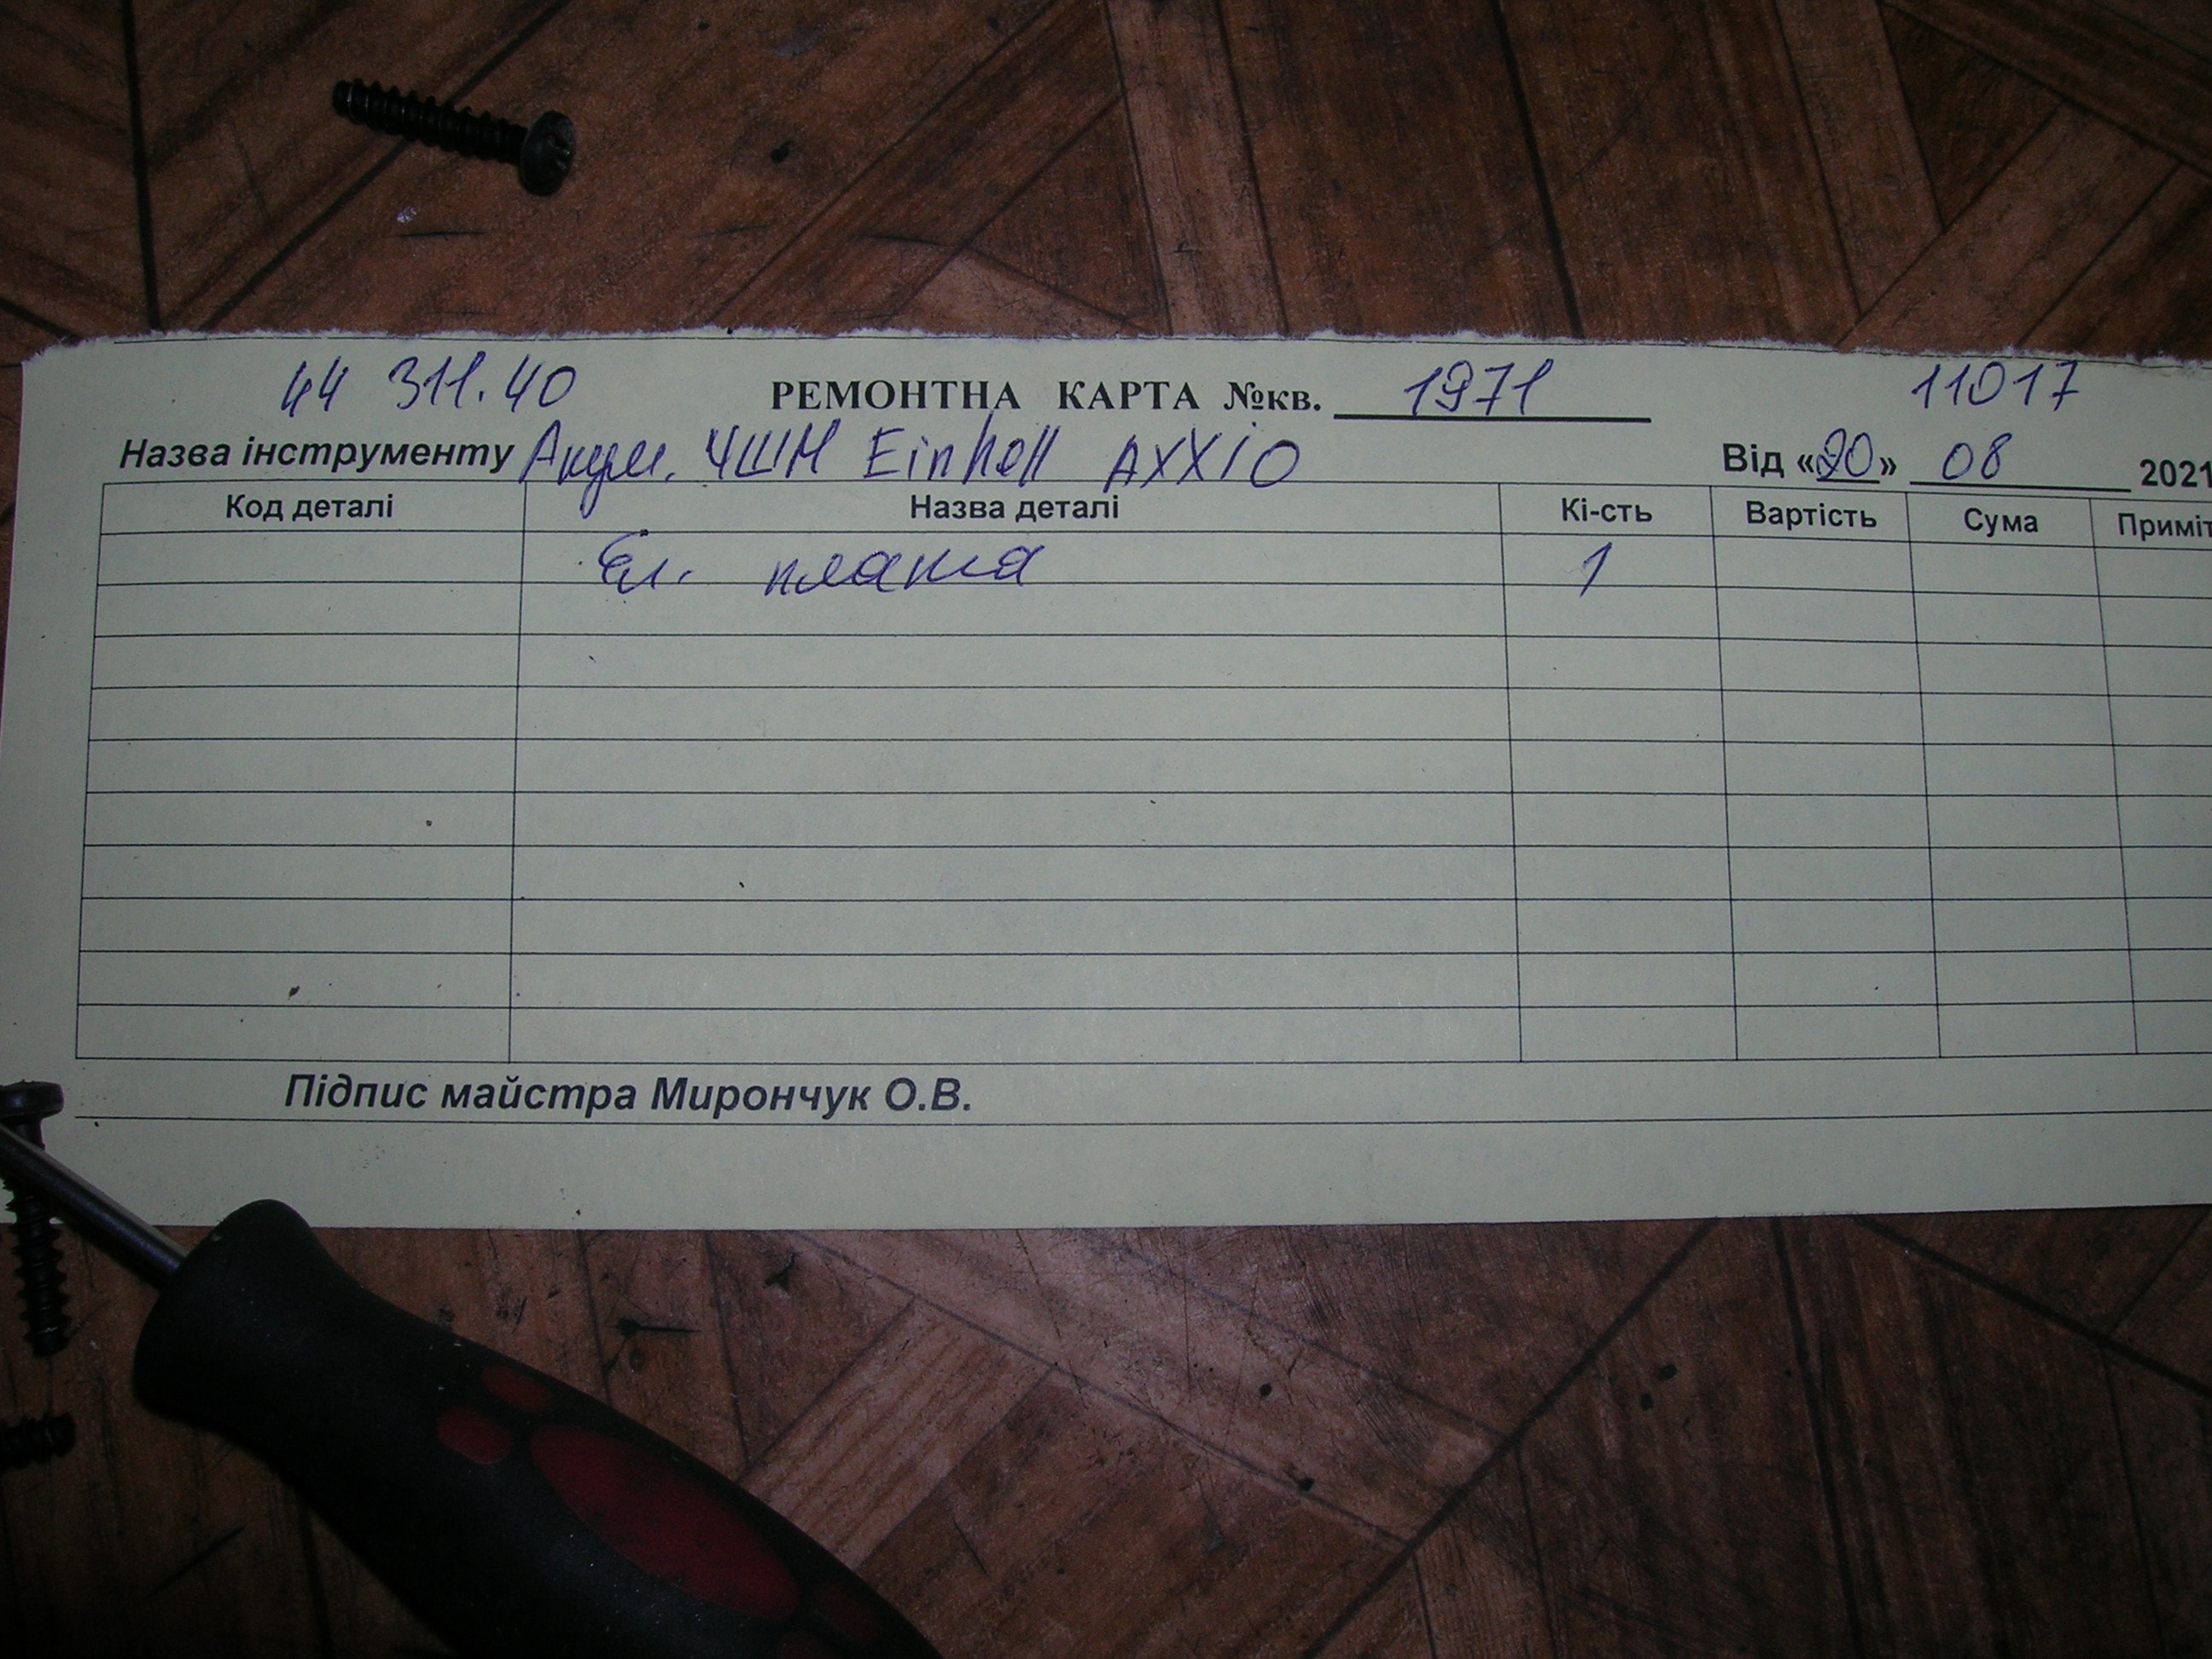 44 311.40 РЕМОНТНА КАРТА №кв. 1971 11017
Назва інструменту Акум. УШМ Einhell AXXIO Від «20» 08 2021
Код деталі Назва деталі Кі-сть Вартість Сума Приміт
Ел. плата 1
Підпис майстра Мирончук О.В.